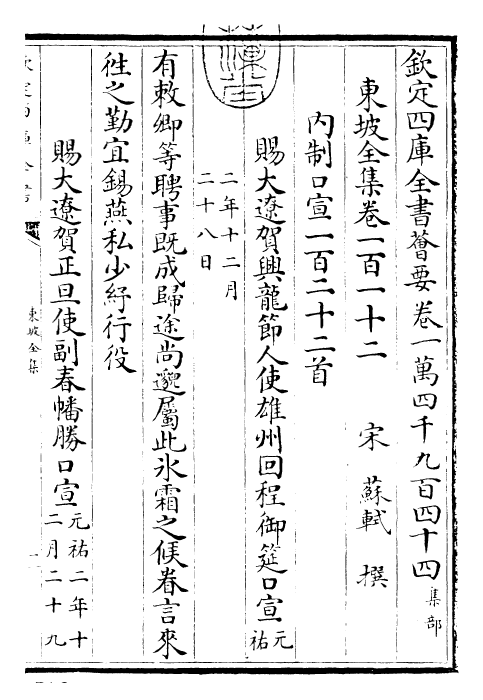 欽定四庫全書薈要卷一萬四千九百四十四集部
東坡全集卷一百一十二 宋 蘇軾 撰
内制口宣一百二十二首
賜大遼賀興龍節人使雄州回程御筵口宣元祐
二年十二月
二十八日
有敕卿等聘事既成歸途尚邈屬此氷霜之候眷言來
徃之勤宜錫燕私少紓行役
賜大遼賀正旦使副春幡勝口宣元祐二年十
二月二十九
東坡全集